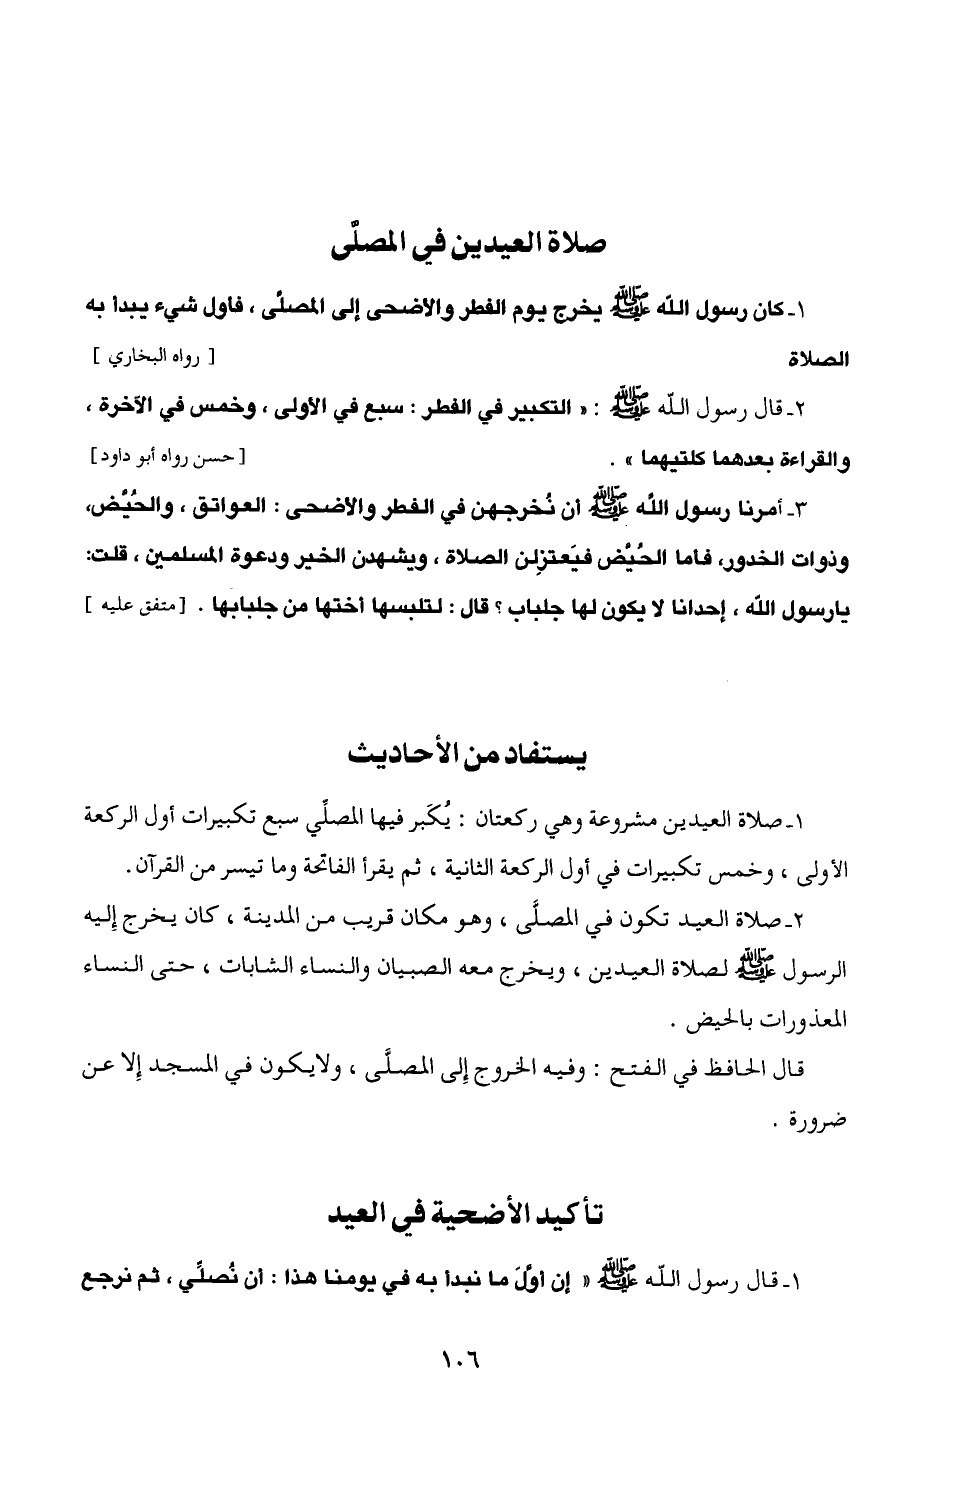 صلاة العيدين في المصلّى
١ـ كان رسول الله ﷺ يخرج يوم الفطر والأضحى إلى المصلَّى ، فأول شيء يبدأ به
الصلاة [ رواه البخاري ]
٢ـ قال رسول الله ﷺ : « التكبير في الفطر : سبع في الأولى ، وخمس في الآخرة ،
والقراءة بعدهما كلتيهما » . [حسن رواه أبو داود]
٣ـ أمرنا رسول الله ﷺ أن نُخرجهن في الفطر والأضحى : العواتق ، والحُيَّض،
وذوات الخدور، فأما الحُيَّض فيَعتزِلن الصلاة ، ويشهدن الخير ودعوة المسلمين ، قلت:
يارسول الله ، إحدانا لا يكون لها جلباب ؟ قال : لتلبسها أختها من جلبابها . [متفق عليه ]
يستفاد من الأحاديث
١ـ صلاة العيدين مشروعة وهي ركعتان : يُكَبر فيها المصلِّي سبع تكبيرات أول الركعة
الأولى ، وخمس تكبيرات في أول الركعة الثانية ، ثم يقرأ الفاتحة وما تيسر من القرآن.
٢ـ صلاة العيد تكون في المصلَّى ، وهو مكان قريب من المدينة ، كان يخرج إليه
الرسول ﷺ لصلاة العيدين ، ويخرج معه الصبيان والنساء الشابات ، حتى النساء
المعذورات بالحيض .
قال الحافظ في الفتح : وفيه الخروج إلى المصلَّى ، ولايكون في المسجد إلا عن
ضرورة .
تأكيد الأضحية في العيد
١ـ قال رسول الله ﷺ « إن أوَّلَ ما نبدأ به في يومنا هذا : أن نُصلِّي ، ثم نرجع
١٠٦